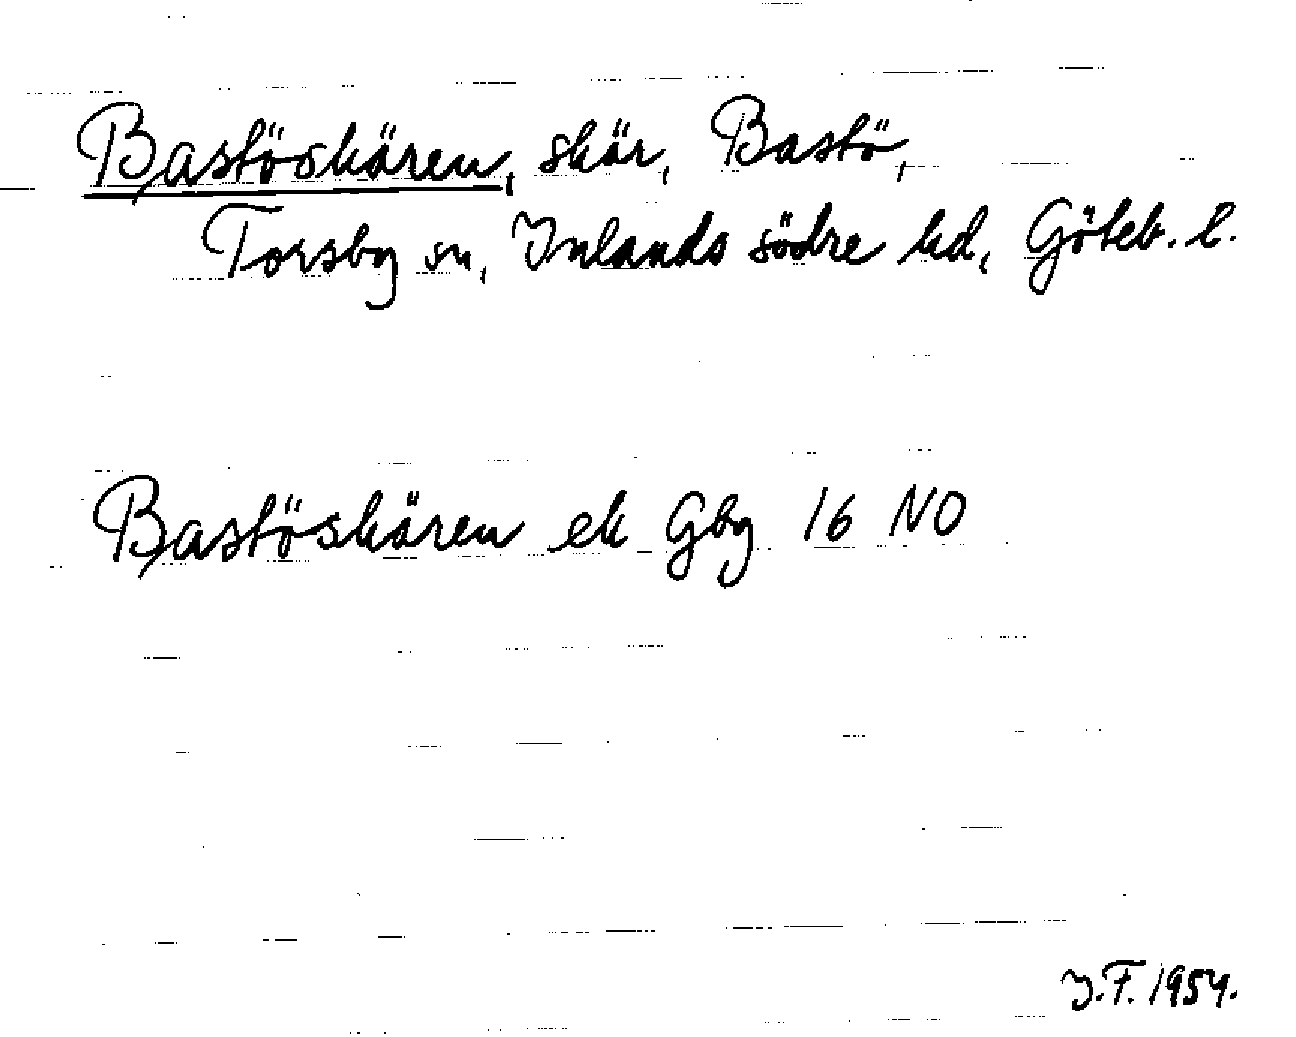 Bastöskären, skär, Bastö,
Torsby sn, Inlands södre hd, Göteb. l.
Bastöskären ek Gbg 16 NO
J.F. 1954.